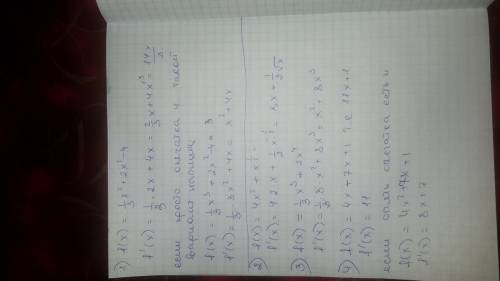 1) f(x) = 1/3 x² + 2x² - 4
f'(x) = 1/3 · 2x + 4x = 2/3 x + 4x = 14x/3
если просто опечатка и такой
вариант напишу
f(x) = 1/3 x³ + 2x² - 4 =
f'(x) = 1/3 · 3x² + 4x = x² + 4x
2) f(x) = 4x² + x^½
f'(x) = 4·2x + 1/2 x^-½ = 8x + 1/2√x
3) f(x) = 1/3 x³ + 2x⁴
f'(x) = 1/3 · 3x² + 8x³ = x² + 8x³
4) f(x) = 4x + 7x + 1 т.е 11x + 1
f'(x) = 11
если опять опечатка есть и
f(x) = 4x² + 7x + 1
f'(x) = 8x + 7